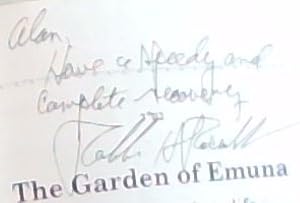 Alan,
Have a speedy and
Complete recovery
Rabbi
The Garden of Emuna